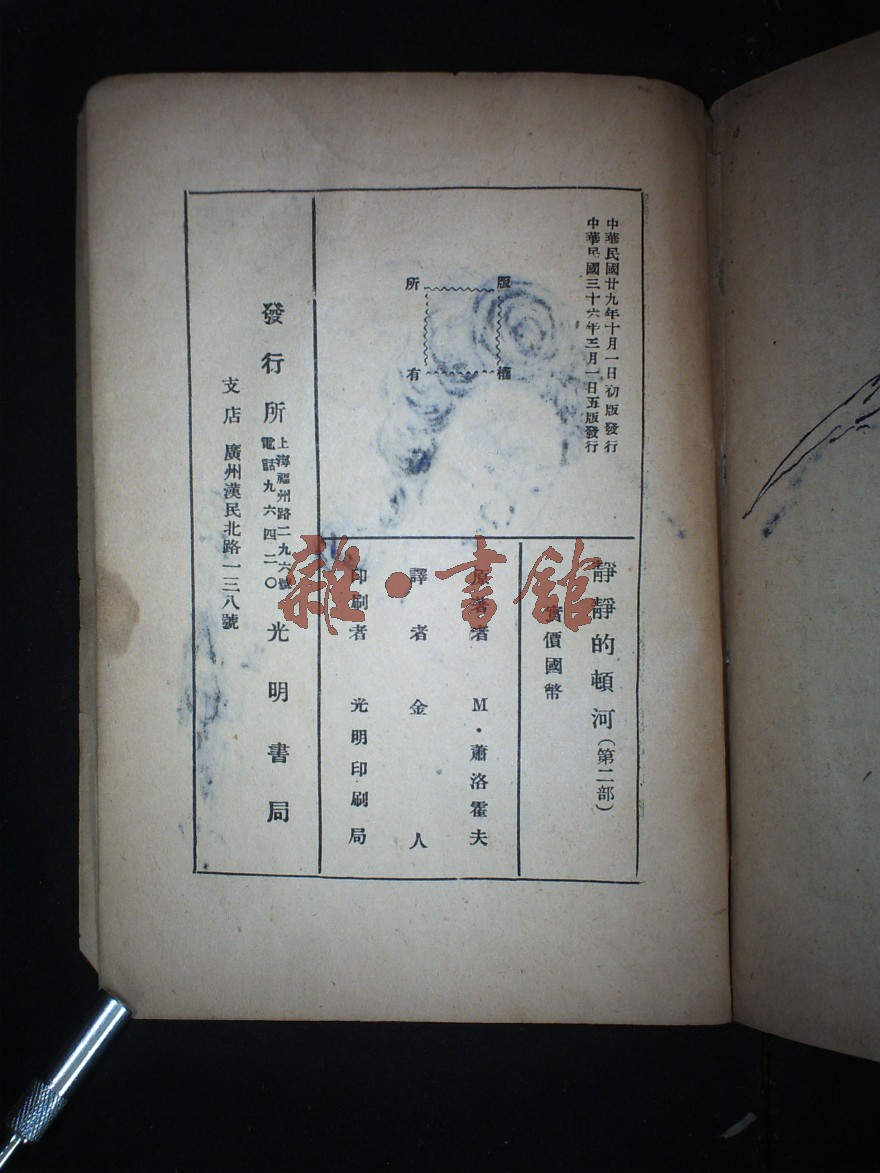 中華民國廿九年十月一日初版發行
中華民國三十六年三月一日五版發行
版權
所有
靜靜的頓河（第二部）
實價國幣
原著者 M·蕭洛霍夫
譯者 金人
印刷者 光明印刷局
發行所 上海福州路二九六號 電話九六四二〇 光明書局
支店 廣州漢民北路一三八號
雜·書館